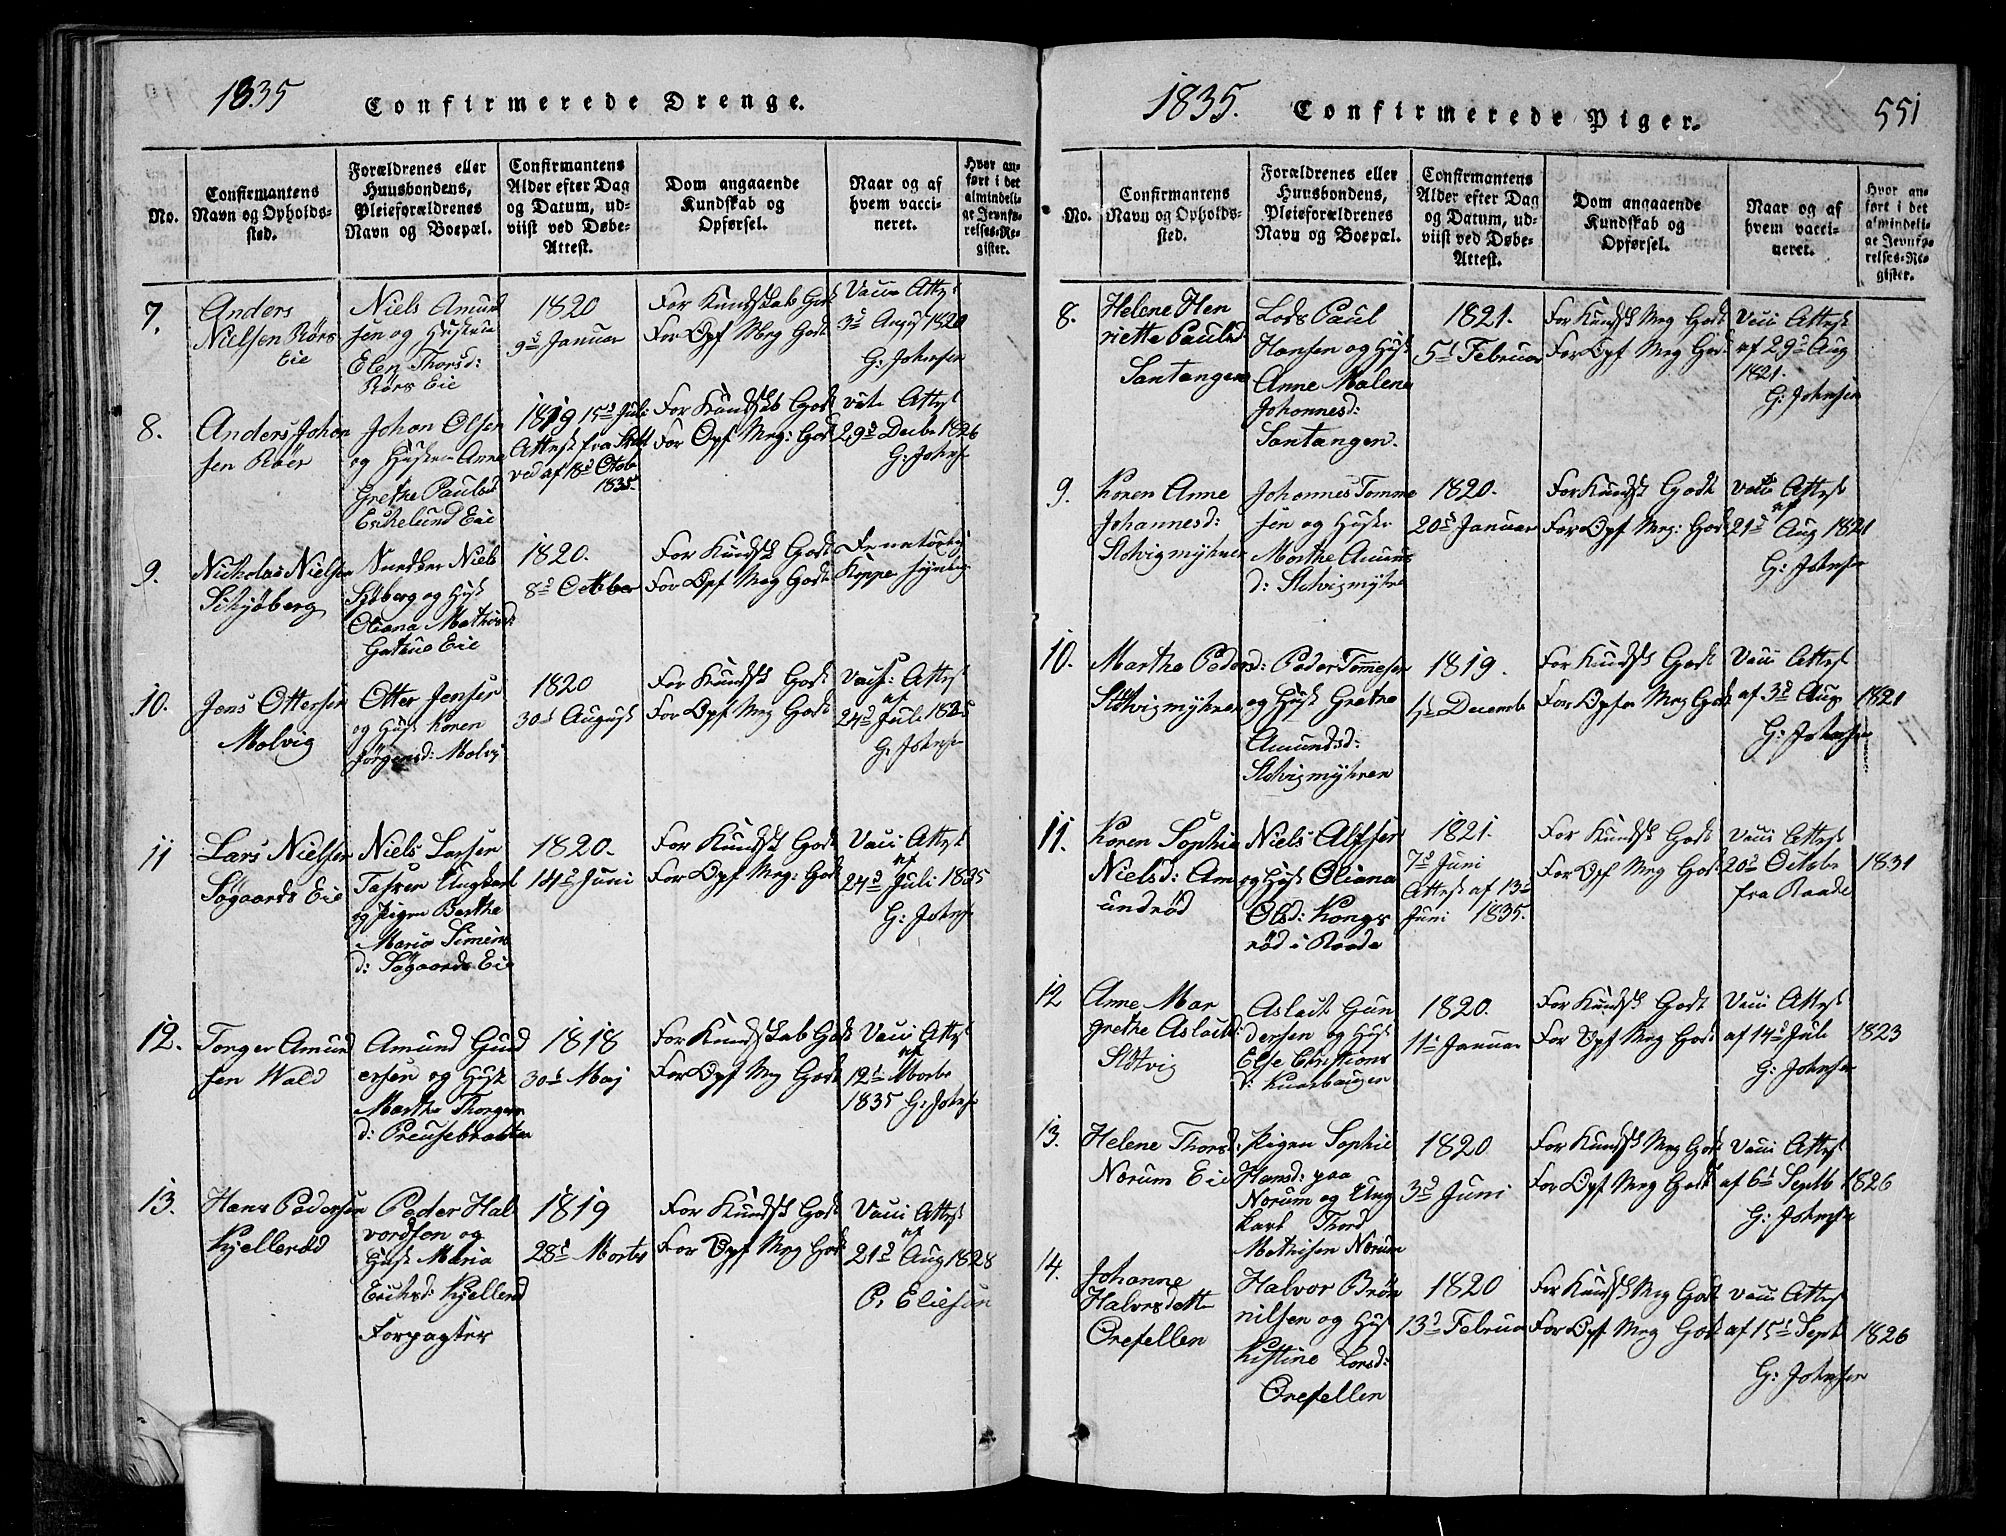 1835
Confirmerede Drenge.
No.
Confirmantens
Navn og Opholds-
sted.
Forældrenes eller
Huusbondens,
Pleieforældrenes
Navn og Boepæl.
Confirmantens
Alder efter Dag
og Datum, ud-
viist ved Døbe-
Attest.
Dom angaaende
Kundskab og
Opførsel.
Naar og af
hvem vacci-
neret.
Hvor an-
ført i det
almindeli-
ge Jevnfø-
relses-Re-
gister.
7.
Anders
Nielsen Rørs
Eie
Niels Amund
sen og Hustru
Elen Thorsd:
Rørs Eie
1820
9d Januar
For Kundskab Godt
For Opf Meg Godt
Vacc Attest
3d August 1820
G: Johnsen
8.
Anders Johan
sen Röer
Johan Olsen
og Hustru Anne
Grethe Paulsd
Eskelund Eie
1819 15d Juli
Attest fra
ved af 18d Octob
1835
For Kundskab Godt
For Opf Meg: Godt
Attest
29d Decbr 1826
G: Johnsen
9.
Nicholas Nielsen
Schjöberg
Niels
Sjöberg og Hust
Oliana Mathisd:
Eie
1820.
8d October
For Kundsk Godt
For Opf Meg Godt
Koppe
10.
Jens Ottersen
Molvig
Otter Jensen
og Hust Karen
Jörgensd: Molvig
1820
30d August
For Kundsk Godt
For Opf Meg Godt
Vacc: Attest
af
24d Juli 1835
G: Johnsen
11
Lars Nielsen
Søgaards Eie
Niels Larsen
Ungkarl
og Pigen Berthe
Maria Simens
d: Søgaards Eie
1820.
14d Juni
For Kundsk Godt
For Opf Meg: Godt
Vacc Attest
af
24d Juli 1835
G: Johnsen
12.
Torger Amund
sen Wald
Amund Gund
ersen og Hust
Marthe Thorgers
d: Preusebraaten
1818
30d Maj
For Kundskab Godt
For Opf Meg Godt
Vacc Attest
af
12d Martz
1835 G: Johnsen
13.
Hans Pedersen
Kjelleröd
Peder Hal
vordsen og
Hust Maria
Erichsd: Kjelleröd
Forpagter
1819
28d Martz
For Kundsk Godt
For Opf Meg Godt
Vacc Attest
af
21d Aug 1828
P: Eliesen
1835.
Confirmerede Piger.
551
No.
Confirmantens
Navn og Opholds-
sted.
Forældrenes eller
Huusbondens,
Pleieforældrenes
Navn og Boepæl.
Confirmantens
Alder efter Dag
og Datum, ud-
viist ved Døbe-
Attest.
Dom angaaende
Kundskab og
Opførsel.
Naar og af
hvem vacci-
neret.
Hvor an-
ført i det
almindeli-
ge Jevnfø-
relses-Re-
gister.
8.
Helene Hen
riette Paulsd
Santangen
Lods Paul
Hansen og Hust
Anne Malene
Johannesd:
Santangen.
1821.
5d Februar
For Kundsk Meg Godt
For Opf Meg Godt
Vacc Attest
af 29d Aug
1821.
G: Johnsen
9.
Karen Anne
Johannesd:
Slotvigmyhren
Johannes Tomme
sen og Hustr
Marthe Amunds
d: Slotvigmyhren
1820.
20d Januar
For Kundsk Godt
For Opf Meg: Godt
Vacc Attest
af
21d Aug 1821
G: Johnsen
10.
Marthe Peders d:
Slotvigmyhren
Peder Tommesen
og Hust Grethe
Amundsd:
Slotvigmyhren
1819.
4d Decembr
For Kundsk Godt
For Opfør Meg Godt
Vacc Attest
af 3d Aug 1821
G: Johnsen
11.
Karen Sophie
Nielsd: Am
undröd
Niels Alfsen
og Hust Oliana
Olsd: Kongs
röd i Raade
1821.
7d Juni
Attest af 13d
Juni 1835.
For Kundsk Godt
For Opf Meg Godt
Vacc Attest
20d October 1831
fra Raade
12
Anne Mar
grethe Aslachsd:
Slotvig
Aslach Gun
dersen og Hust
Else Christians
d:
1820.
11d Januar
For Kundsk Godt
For Opf Meg Godt
Vacc Attest
af 14d Juli 1823
G: Johnsen
13.
Helene Thorsd:
Norum Eie
Pigen Sophie
Hansd: paa
Norum og Ung
karl Thord
Mathisen Norum
1820
3d Juni
For Kundsk Meg Godt
For Opf Meg Godt
Vacc Attest
af 6d Septb 1826
G: Johnsen
14.
Johanne
Halvorsdatte
Orefellen
Halvor Brön
nilsen og Hust
Kistine Larsd:
Orefellen
1820
13d Februar
For Kundsk Meg Godt
For Opf Meg Godt
Vacc Attest
af 15d Sept 1826
G: Johnsen